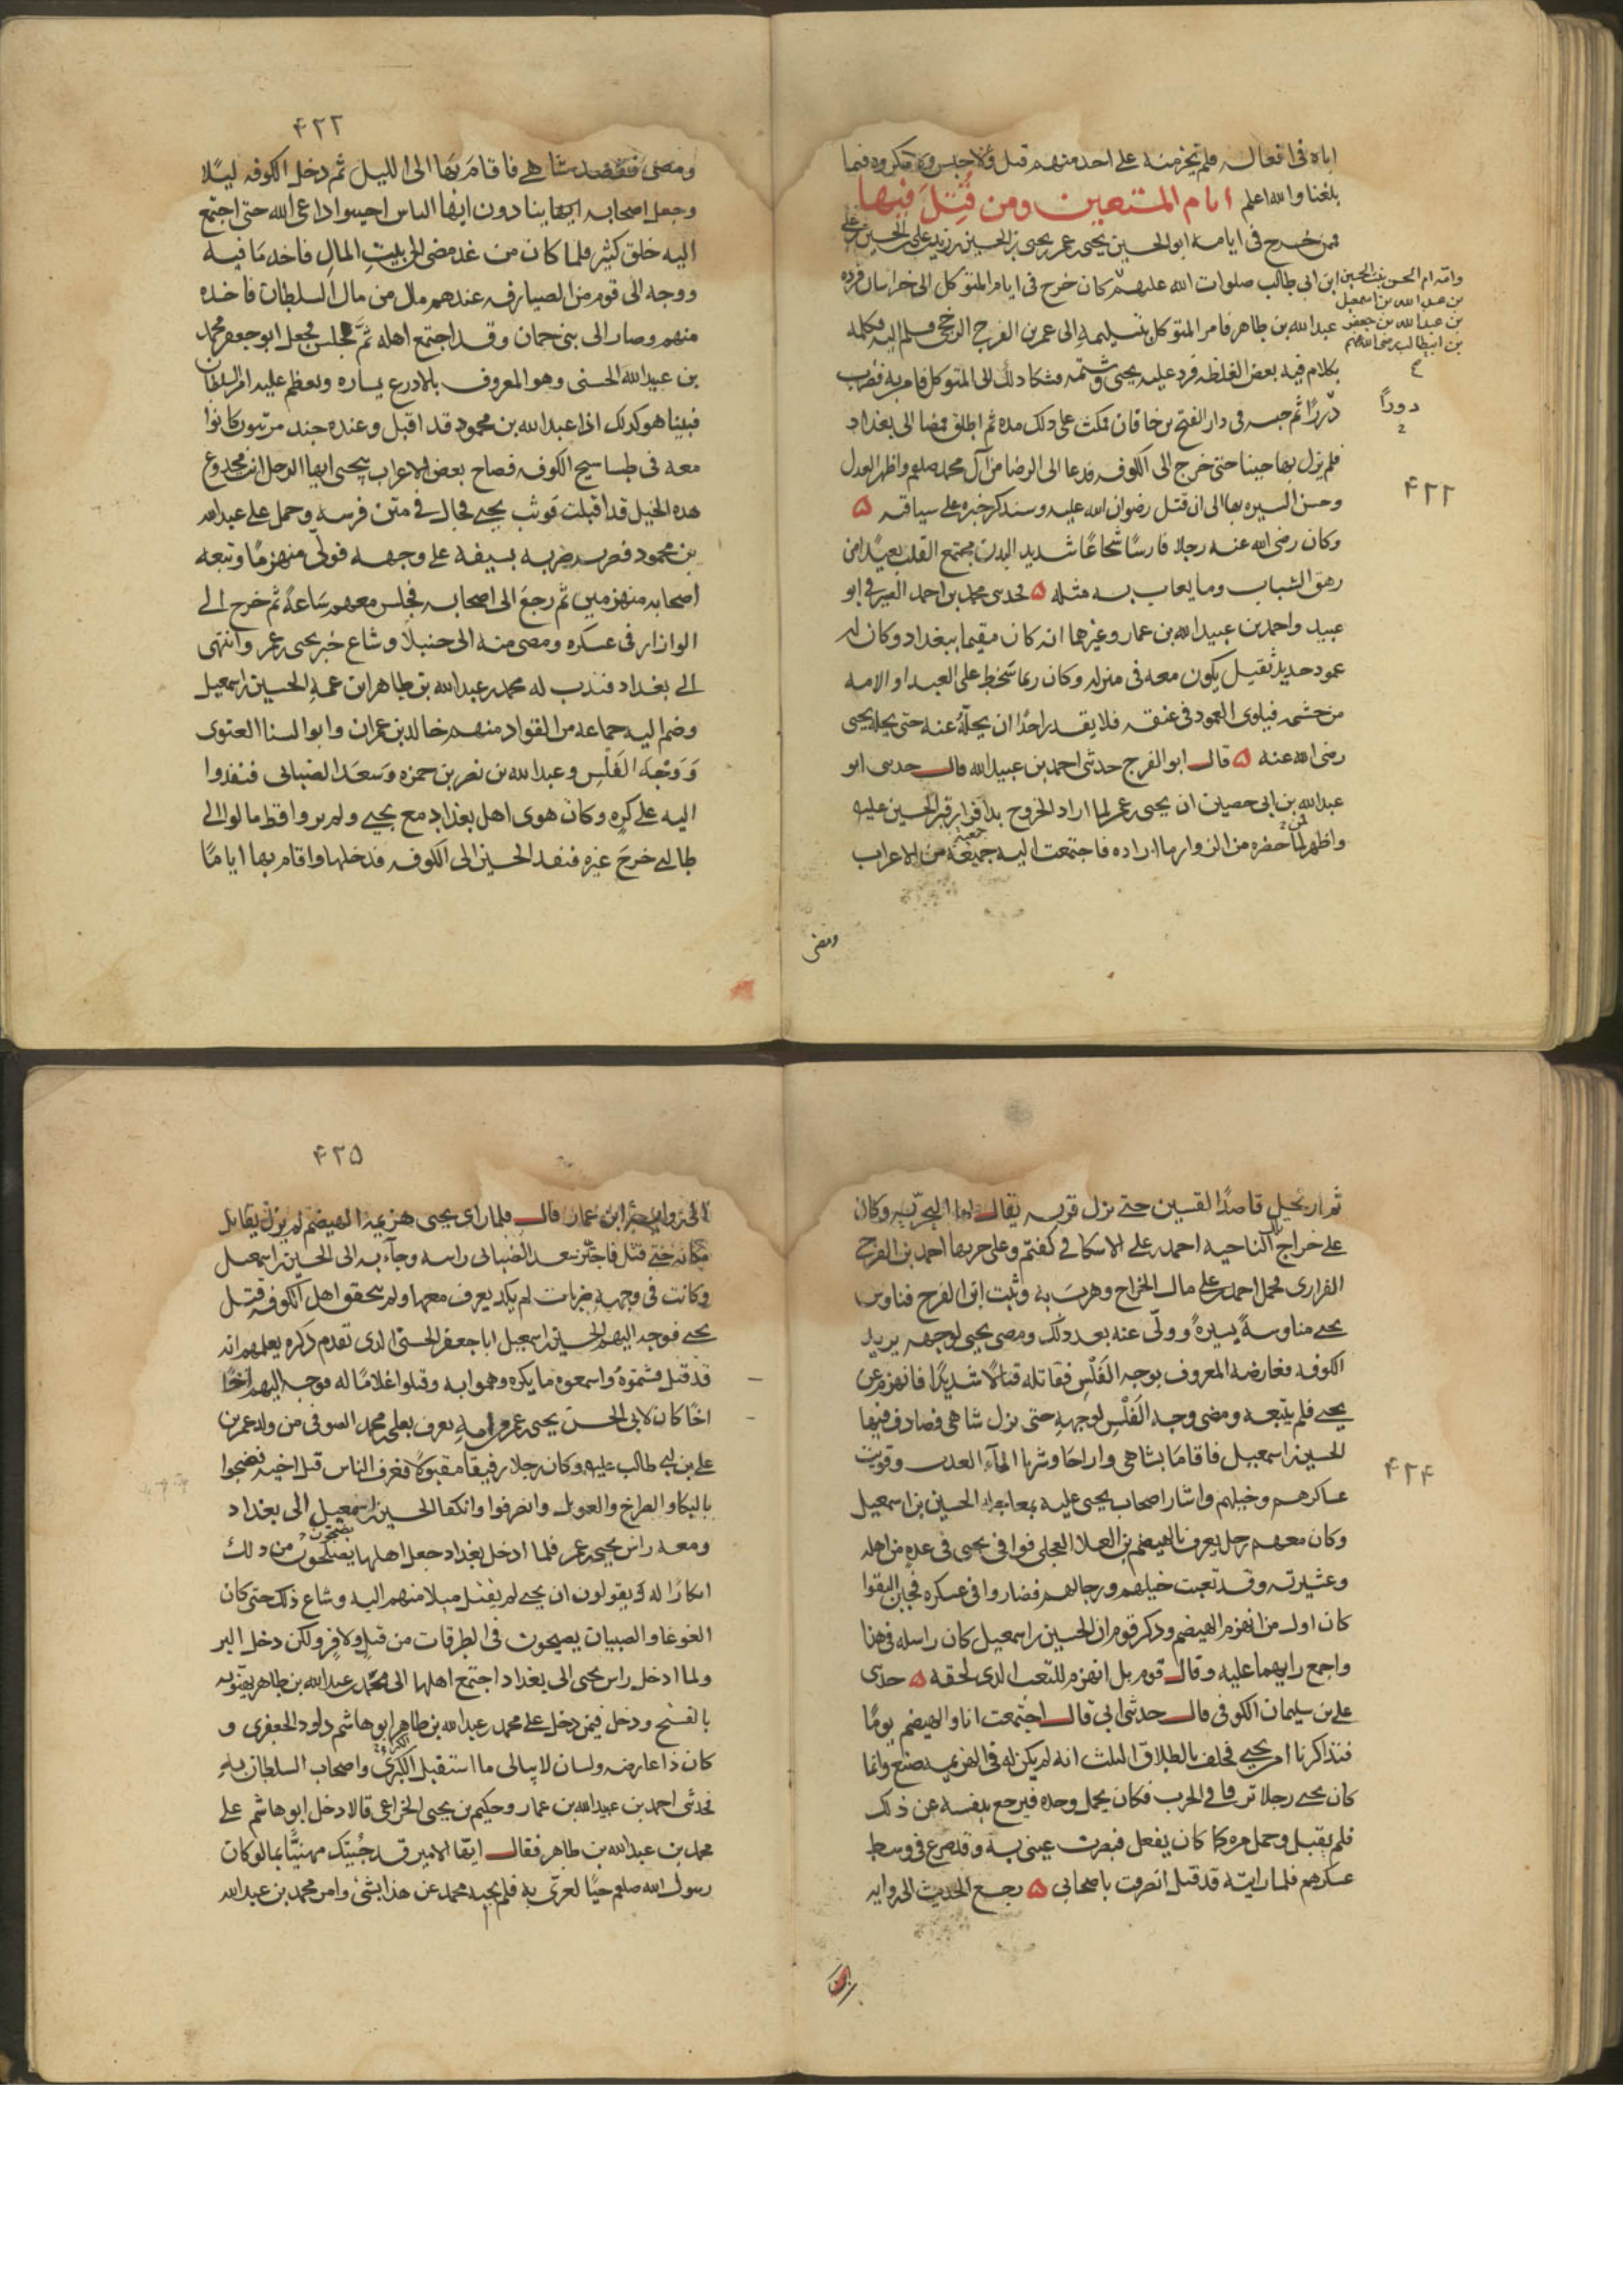 اباه فى افعاله فلم يجر منه على احد منهم قتل ولا حبس ولا مكروه فيما
بلغنا والله اعلم ايام المستعين ومن قُتِلَ فيها
فممن خرج فى ايامه ابو الحسين يحيى بن عمر بن يحيى بن الحسين بن زيد بن على بن الحسين بن على
ابن ابى طالب صلوات الله عليهم كان خرج فى ايام المتوكل الى خراسان فرده
وامه ام الحسن بنت الحسين
بن عبد الله بن اسمعيل
بن عبد الله بن جعفر
بن ابيطالب رضى الله عنهم
عبد الله بن طاهر فامر المتوكل بتسليمه الى عمر بن الفرج الرخجى فسلم اليه فكلمه
بكلام فيه بعض الغلظه فرد عليه يحيى وشتمه فشكا ذلك الى المتوكل فامر به فضرب
دررًا ثم حبسه فى دار الفتح بن خاقان فمكث على ذلك مده ثم اطلق فمضا الى بغداد
دورًا
فلم يزل بها حينا حتى خرج الى الكوفه فدعا الى الرضا من آل محمد صلعم واظهر العدل
۴۲۲
وحسن السيره بها الى ان قتل رضوان الله عليه وسنذكر خبره على سياقته ۵
وكان رضى الله عنه رجلا فارسًا شجاعًا شديد البدن مجتمع القلب بعيدًا من
رهق الشباب وما يعاب به مثله ۵ فحدثنى محمد بن احمد الصيرفى ابو
عبيد واحمد بن عبيد الله بن عمار وغيرهما انه كان مقيما ببغداد وكان له
عمود حديد ثقيل يكون معه فى منزله وكان ربما سخط على العبد او الامه
من حشمه فيلوى العمود فى عنقه فلا يقدر احد ان يحلّه عنه حتى يحله يحيى
رضى الله عنه ۵ قال ابو الفرج حدثنى احمد بن عبيد الله قال حدثنى ابو
عبد الله بن ابى حصين ان يحيى بن عمر لما اراد الخروج بدا فزار قبر الحسين عليه
واظهر لمن حضره من الزوار ما اراده فاجتمعت اليه جميعة من الاعراب
ومضى
۴۲۳
ومضى فقصد شاهى فاقام بها الى الليل ثم دخل الكوفه ليلًا
وجعل اصحابه ينادون ايها الناس اجيبوا داعى الله حتى اجتمع
اليه خلق كثير فلما كان من غد مضى الى بيت المال فاخذ ما فيه
ووجه الى قوم من الصيارفه عندهم مال من مال السلطان فاخذه
منهم وصار الى بنى حمان وقد اجتمع اهله ثم جلس فجعل ابو جعفر محمد
بن عبيد الله الحسنى وهو المعروف بالادرع يساره ويعظم عليه امر السلطان
فبينا هو كذلك اذا عبد الله بن محمود قد اقبل وعنده جند مرتبون كانوا
معه فى طساسيج الكوفه فصاح بعض الاعراب بيحيى ايها الرجل انت مخدوع
هذه الخيل قد اقبلت فوثب يحيى فجال فى متن فرسه وحمل على عبد الله
بن محمود فضربه ضربه بسيفه على وجهه فولّى منهزمًا وتبعه
اصحابه منهزمين ثم رجع الى اصحابه فجلس معهم ساعةً ثم خرج الى
الوازار فى عسكره ومضى منه الى جنبلا وشاع خبر يحيى بن عمر وانتهى
الى بغداد فندب له محمد بن عبد الله بن طاهر ابن عمه الحسين بن اسمعيل
وضم اليه جماعه من القواد منهم خالد بن عمران وابو السنا الغنوى
وَوَجْه الفَلْسِ وعبد الله بن نصر بن حمزه وسعد الضبابى فنفذوا
اليه على كره وكان هوى اهل بغداد مع يحيى ولم يروا قط مالوا الى
طالبى خرج غيره فنفذ الحسين الى الكوفه فدخلها واقام بها ايامًا
ثم ارتحل قاصدًا القسين حتى نزل قريه يقال لها البحريه وكان
على خراج تلك الناحيه احمد بن على الاسكافى وعلى حربها احمد بن الفرج
الفزارى فحمل احمد بن على مال الخراج وهرب به وثبت ابن الفرج فناوش
يحيى مناوشةً يسيرةً وولّى عنه بعد ذلك ومضى يحيى لوجهه يريد
الكوفه فعارضه المعروف بوجه الفَلْسِ فقاتله قتالًا شديدًا فانهزم عن
يحيى فلم يتبعه ومضى وجه الفَلْسِ لوجهه حتى نزل شاهى فصادف فيها
الحسين بن اسمعيل فاقاما بشاهى واراحا وشربا الماء العذب وقويت
۴۲۴
عساكرهم وخيلهم واشار اصحاب يحيى عليه بمعاجله الحسين بن اسمعيل
وكان معهم رجل يعرف بالهيضم بن العلا العجلى فوافى يحيى فى عده من اهله
وعشيرته وقد تعبت خيلهم ورجالهم فصاروا فى عسكره فحين التقوا
كان اول من انهزم الهيضم وذكر قوم ان الحسين بن اسمعيل كان راسله فى هذا
واجمع رايهما عليه وقال قوم بل انهزم للتعب الذى لحقه ۵ حدثنى
على بن سليمان الكوفى قال حدثنى ابى قال اجتمعت انا والهيضم يومًا
فتذاكرنا امر يحيى فحلف بالطلاق الثلث انه لم يكن له فى الهزيمه صنع وانما
كان يحيى رجلا نزقا فى الحرب فكان يحمل وحده فيرجع بنفسه عن ذلك
فلم يقبل وحمل مره كما كان يفعل فبصرت عينى به وقد صرع فى وسط
عسكرهم فلما رايته قد قتل انصرفت باصحابى ۵ رجع الحديث الى روايه
ابن
۴۲۵
ابن عمار قال فلما راى يحيى هزيمه الهيضم لم يزل يقاتل
مكانه حتى قتل فاجتز سعد الضبابى راسه وجاء به الى الحسين بن اسمعيل
وكانت فى وجهه ضربات لم يكد يعرف معها ولم يتحقق اهل الكوفه قتل
يحيى فوجه اليهم الحسين بن اسمعيل ابا جعفر الحسنى الذى تقدم ذكره يعلمهم انه
قد قتل فشتموه واسمعوه ما يكره وهموا به وقتلوا غلامًا له فوجه اليهم اخًا
اخًا كان لابى الحسين يحيى بن عمر من امه يعرف بعلى بن محمد الصوفى من ولد عمر بن
على بن ابى طالب عليه وكان رجلا رفيقًا مقبولًا فعرف الناس قتل اخيه فضجوا
بالبكا والصراخ والعويل وانصرفوا وانكفا الحسين بن اسمعيل الى بغداد
ومعه راس يحيى بن عمر فلما ادخل بغداد جعل اهلها يصيحون من ذلك
انكارًا له ويقولون ان يحيى لم يقتل ميلا منهم اليه وشاع ذلك حتى كان
الغوغا والصبيان يصيحون فى الطرقات ما قتل ولا فر ولكن دخل البر
ولما ادخل راس يحيى الى بغداد اجتمع اهلها الى محمد بن عبد الله بن طاهر يهنونه
بالفتح ودخل فيمن دخل على محمد بن عبد الله بن طاهر ابو هاشم داود الجعفرى و
كان ذا عارضه ولسان لا يبالى ما استقبل الكبرى واصحاب السلطان به
فحدثنى احمد بن عبيد الله بن عمار وحكيم بن يحيى الخزاعى قالا دخل ابو هاشم على
محمد بن عبد الله بن طاهر فقال ايها الامير قد جُيتك مهنيًّا بما لو كان
رسول الله صلعم حيًّا لعزى به فلم يجبه محمد عن هذا بشئ وامر محمد بن عبد الله